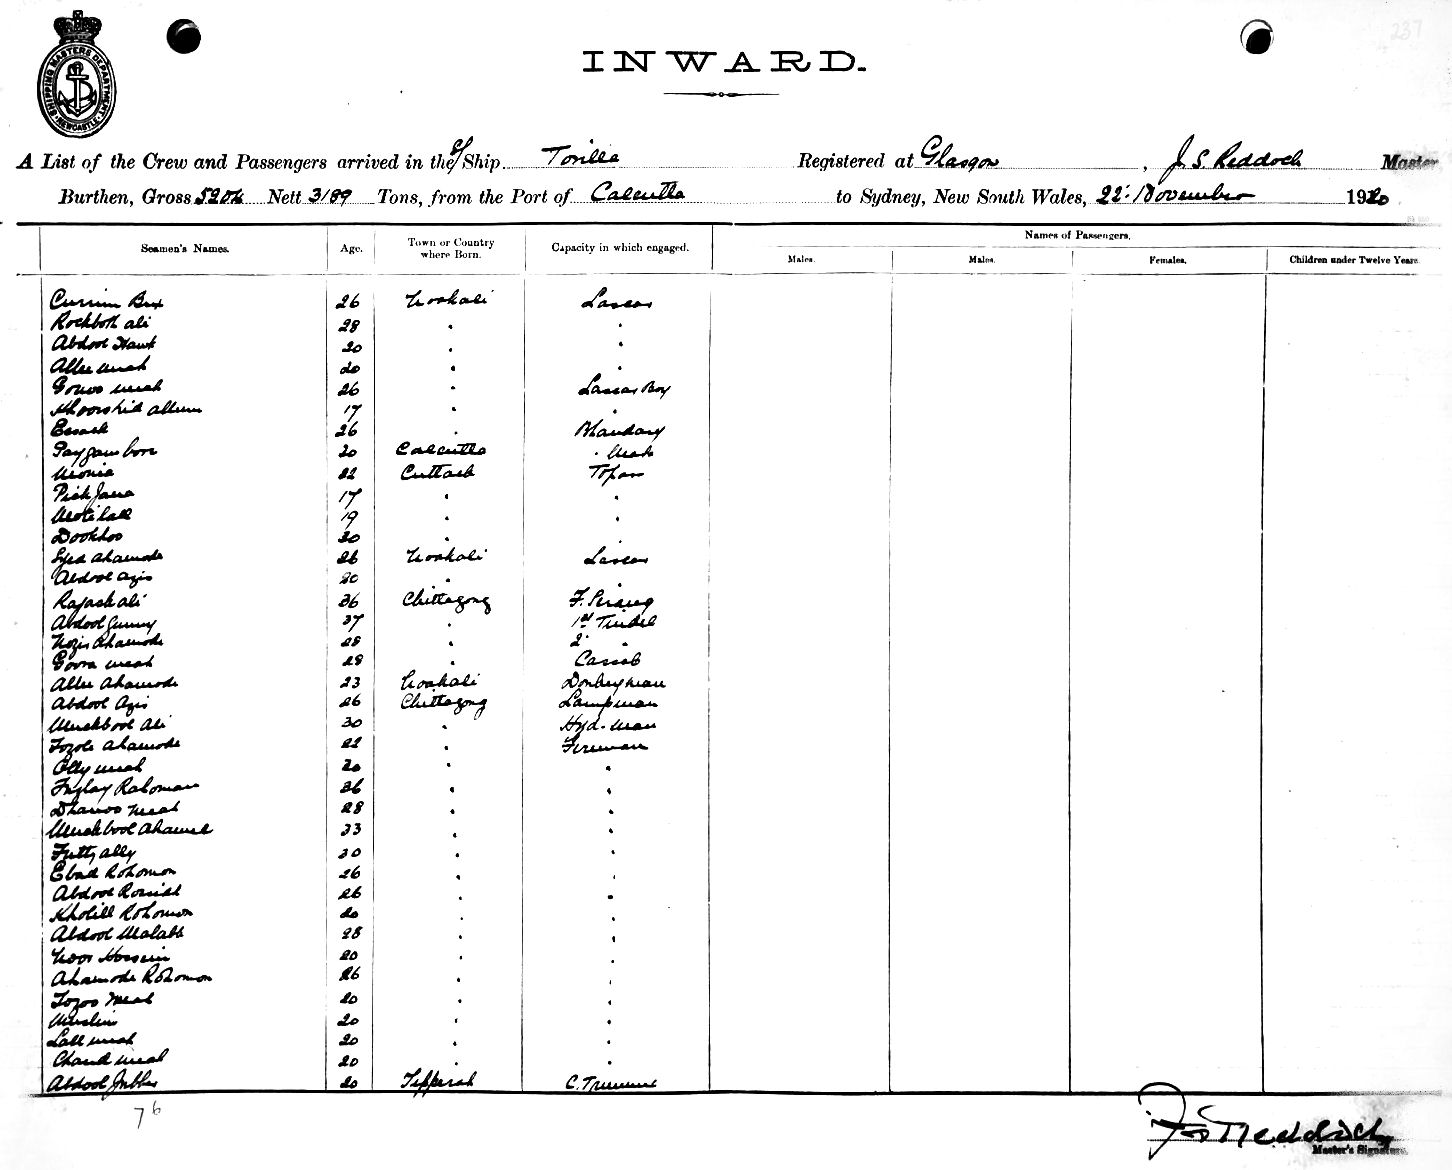 237
SHIPPING MASTERS DEPARTMENT NEWCASTLE
INWARD.
A List of the Crew and Passengers arrived in the s/ Ship Torilla Registered at Glasgow , J. S. Reddoch Master
Burthen, Gross 5204 Nett 3189 Tons, from the Port of Calcutta to Sydney, New South Wales, 22. November 1920
Seamen's Names. Age. Town or Country where Born. Capacity in which engaged. Names of Passengers.
Males. Males. Females. Children under Twelve Years.
Currim Bux 26 Noakali Lascar
Rockbolt ali 28 " "
Abdool Hawk 20 " "
Allee meah 20 " "
meah 26 " Lascar Boy
Khoorshid allum 17 " "
Essack 26 " Bhandary
20 Calcutta " Mate
Monia 22 Cuttack Topas
17 " "
Motilall 19 " "
Dookhoo 20 " "
Syed Ahamode 26 Noakali Lascar
Abdool Azis 20 " "
Rajack ali 36 Chittagong F. Serang
Abdool Gunny 37 " 1st Tindel
Ahamode 28 " 2 "
Goora meah 28 " Cassab
Allee Ahamode 23 Noakali Donkeyman
Abdool Azis 26 Chittagong Lampman
Muckbool Ali 30 " Hyd-man
Fozole Ahamode 22 " Fireman
Olly meah 20 " "
Rahoman 36 " "
meah 28 " "
Muckbool Ahamed 33 " "
Futty ally 30 " "
Ebad Rohomon 26 " "
Abdool 26 " "
Kholill Rohomon 20 " "
Abdool Malabb 28 " "
Noor Hossein 20 " "
Ahamode Rohomon 26 " "
meah 20 " "
Muslim 20 " "
Lall meah 20 " "
Chand meah 20 " "
Abdool Jubber 20 Tipperah C. Trimmer
76
J S Reddoch
Master's Signature.